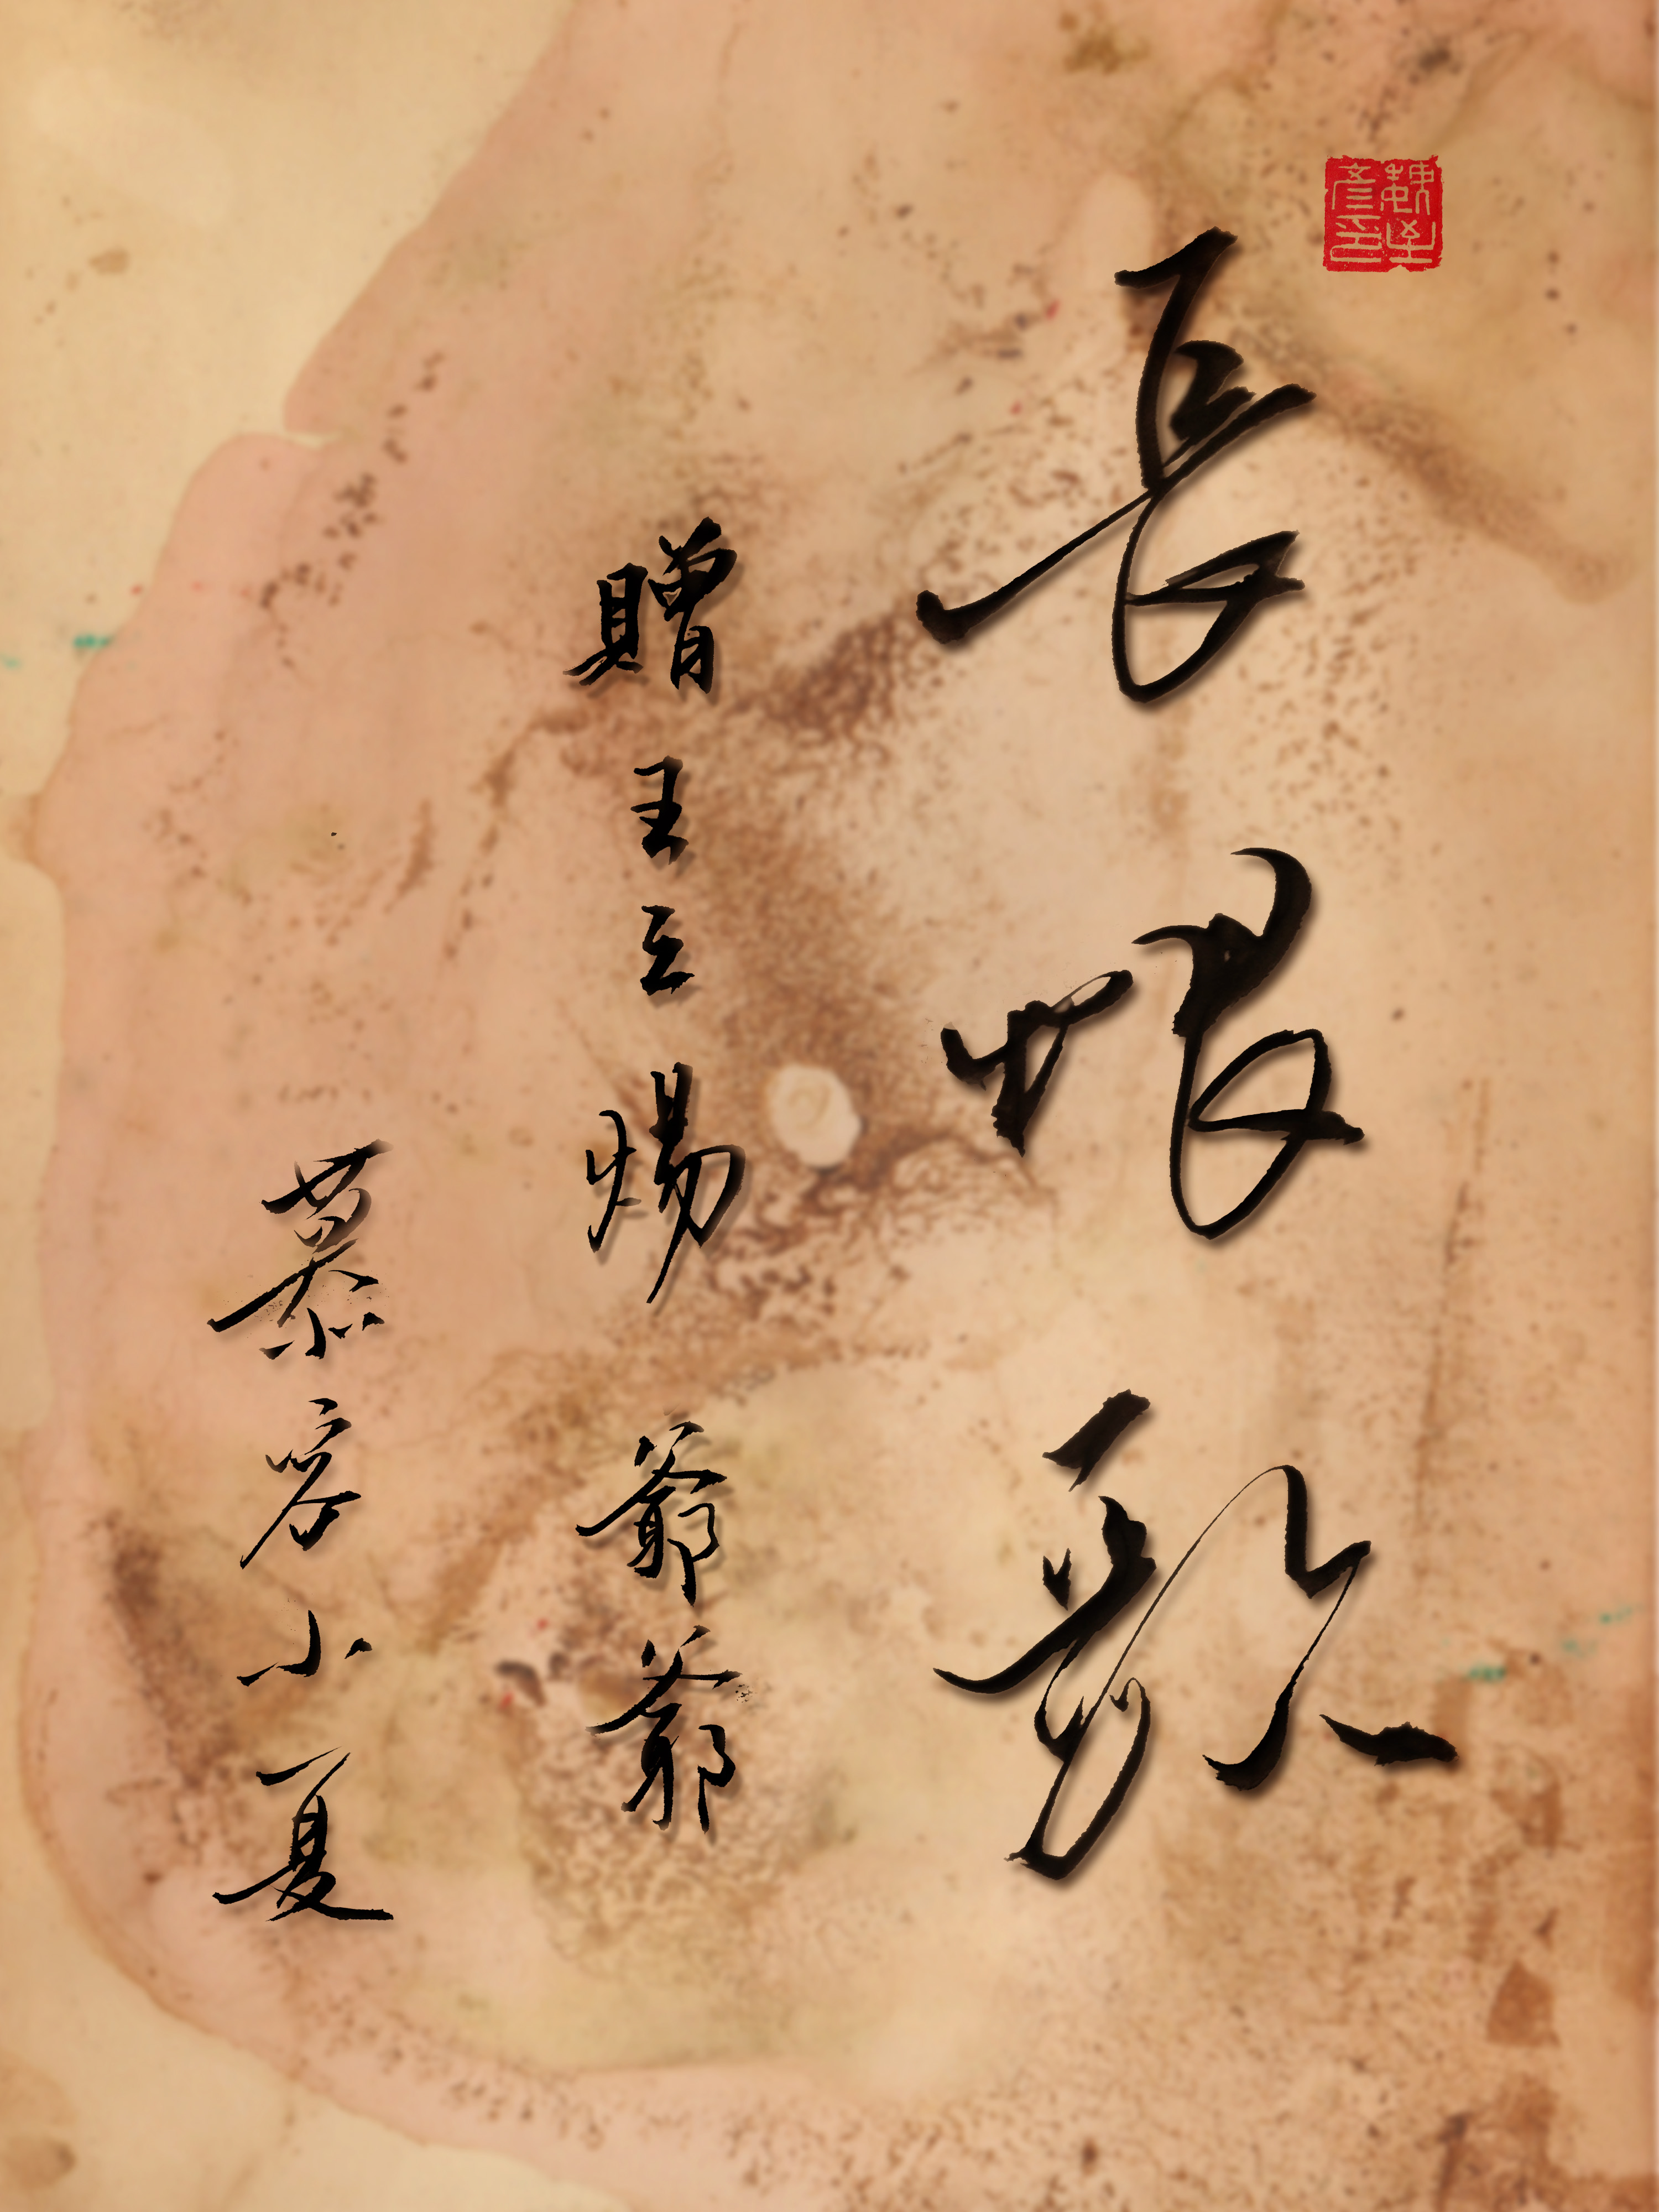 長恨歌
贈王玉煬爺爺
慕容小夏